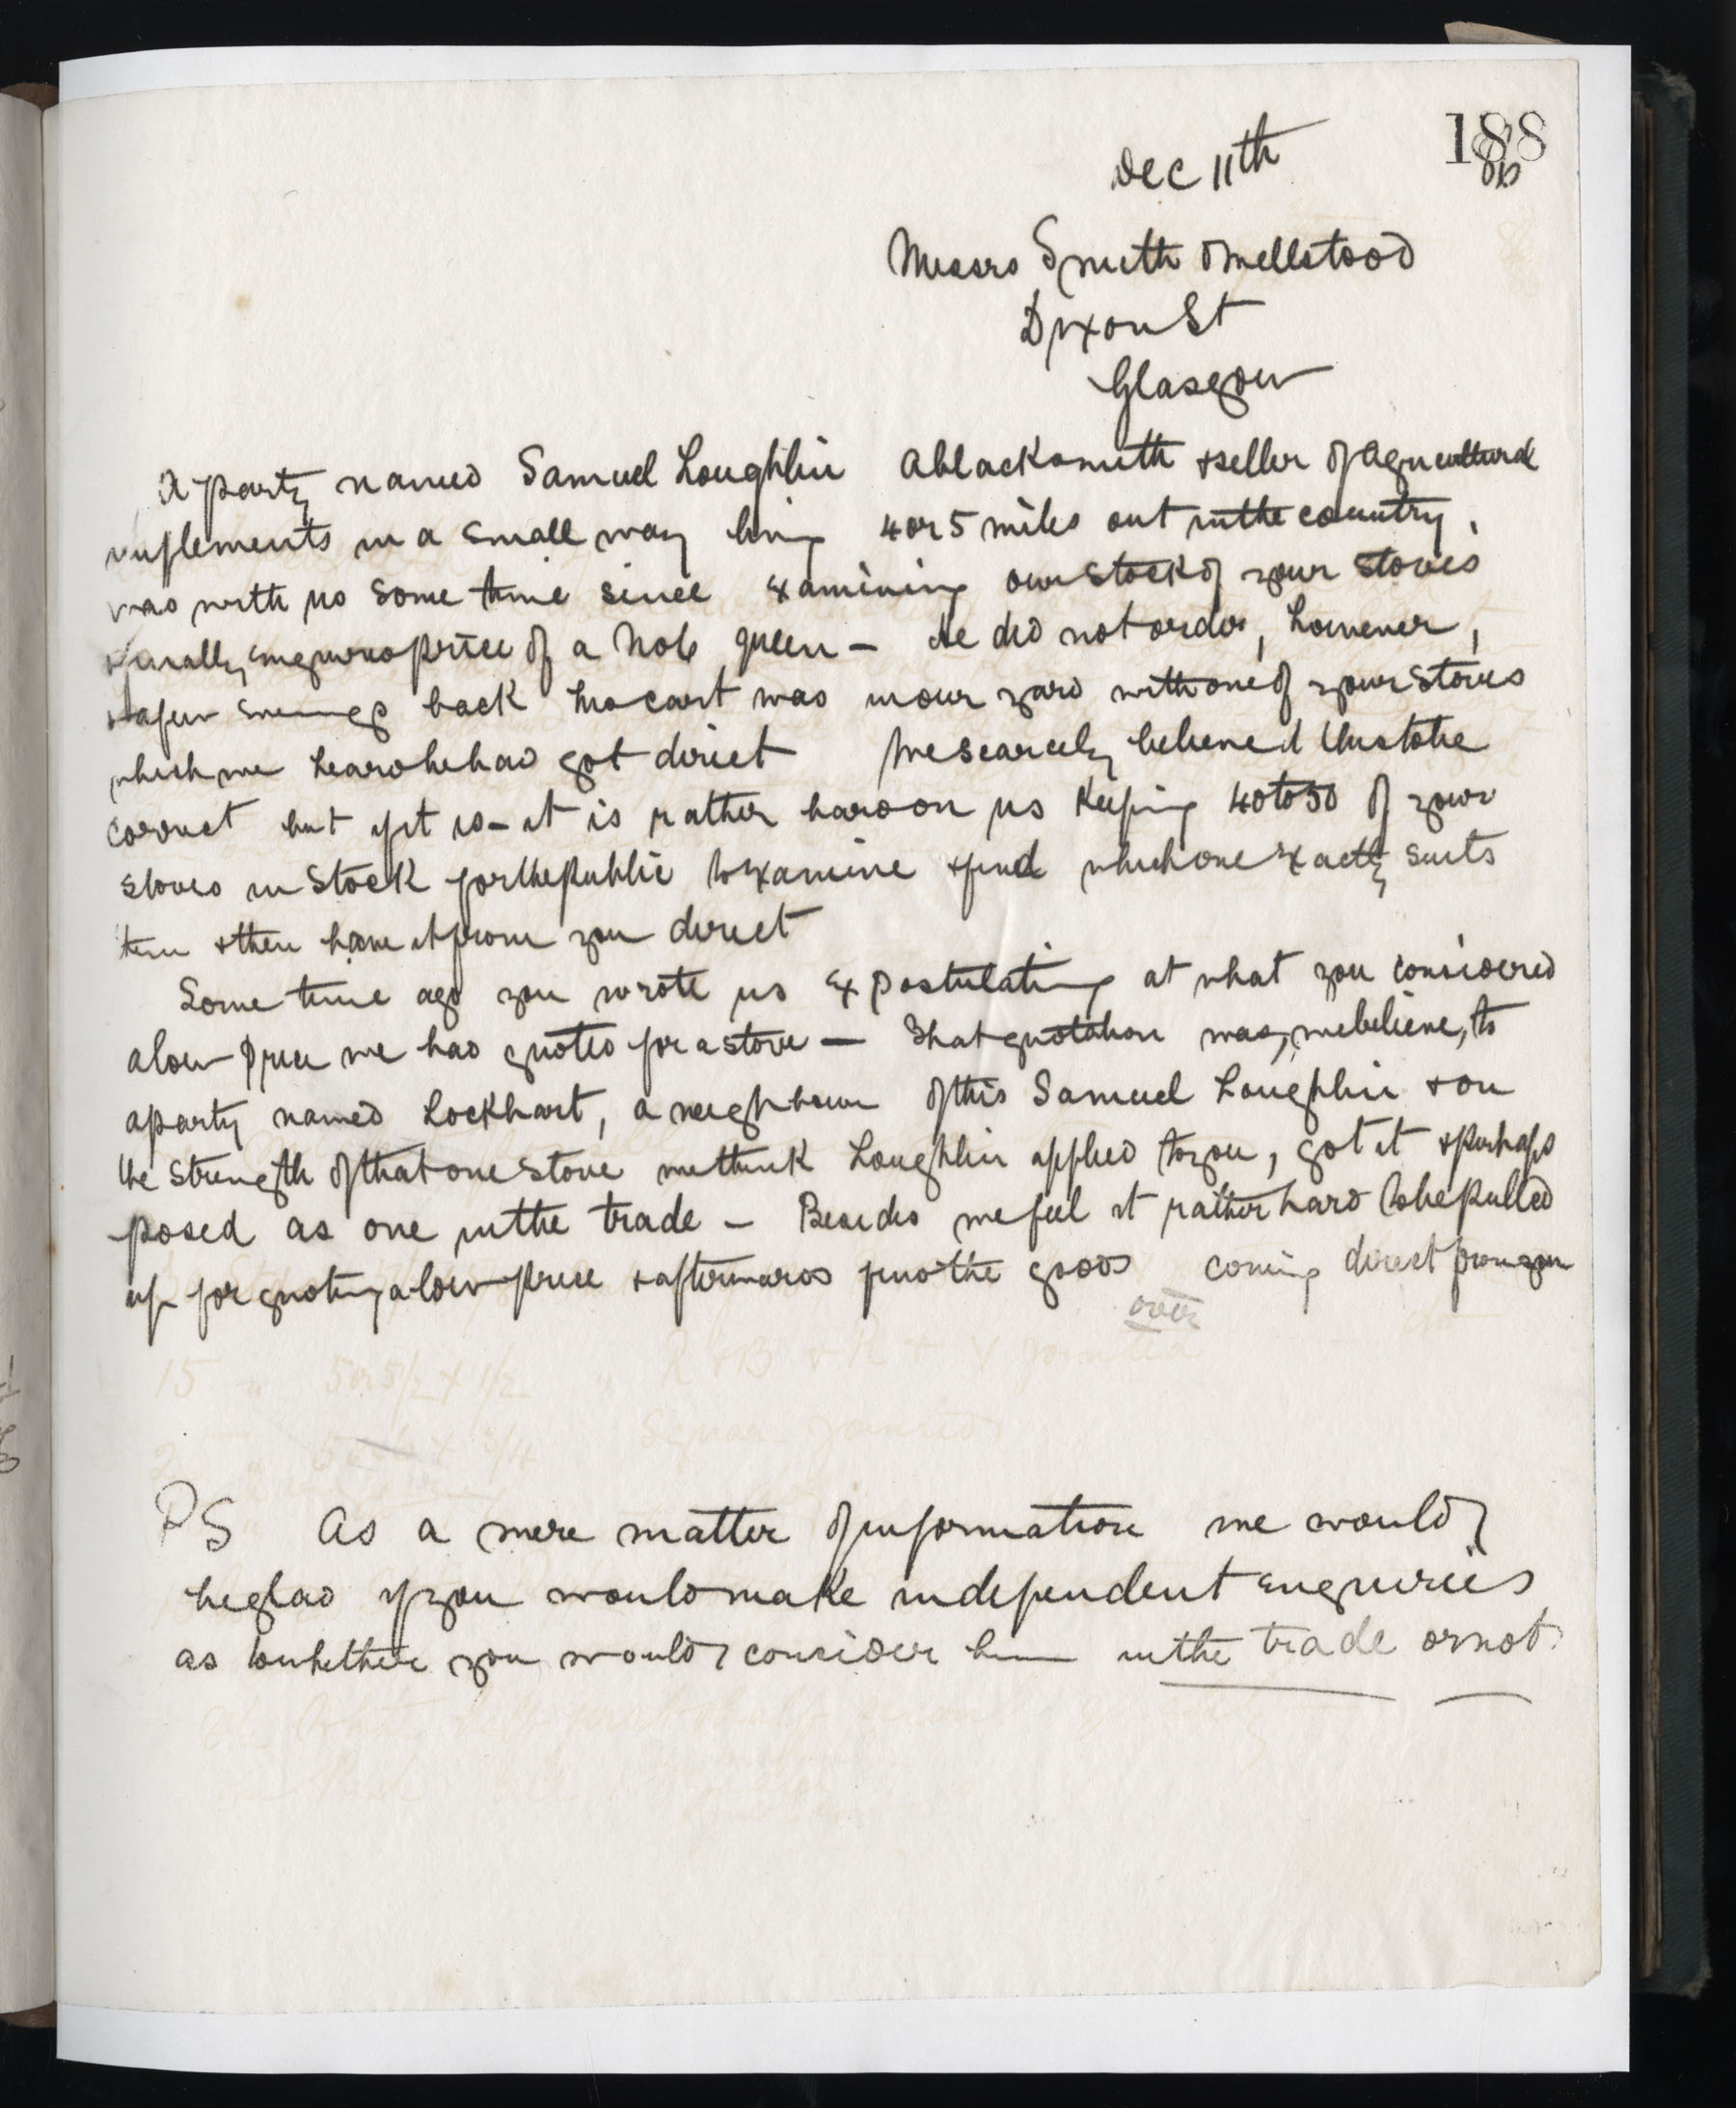 188
86
Dec 11th
Messrs Smith & Wellstood
Dixon St
Glasgow
A party named Samuel Loughlin A blacksmith & seller of Agricultural
implements in a small way living 4 or 5 miles out in the country,
was with us some time since examining our stock of your stoves
& finally enquired price of a No 6 Queen — He did not order, however,
& a few evenings back his cart was in our yard with one of your stoves
which we heard he had got direct We scarcely believed this to be
correct but if it is — it is rather hard on us keeping 40 to 50 of your
stoves in stock for the public to examine & find which one exactly suits
them & then have it from you direct
Some time ago you wrote us expostulating at what you considered
a low price we had quoted for a stove — That quotation was, we believe, to
a party named Lockhart, a neighbour of this Samuel Loughlin & on
the strength of that one stove we think Loughlin applied to you, got it & perhaps
posed as one in the trade — Besides we feel it rather hard to be pulled
up for quoting a low price & afterwards find the goods coming direct from you
over
PS As a mere matter of information we would
be glad if you would make independent enquiries
as to whether you would consider him in the trade or not